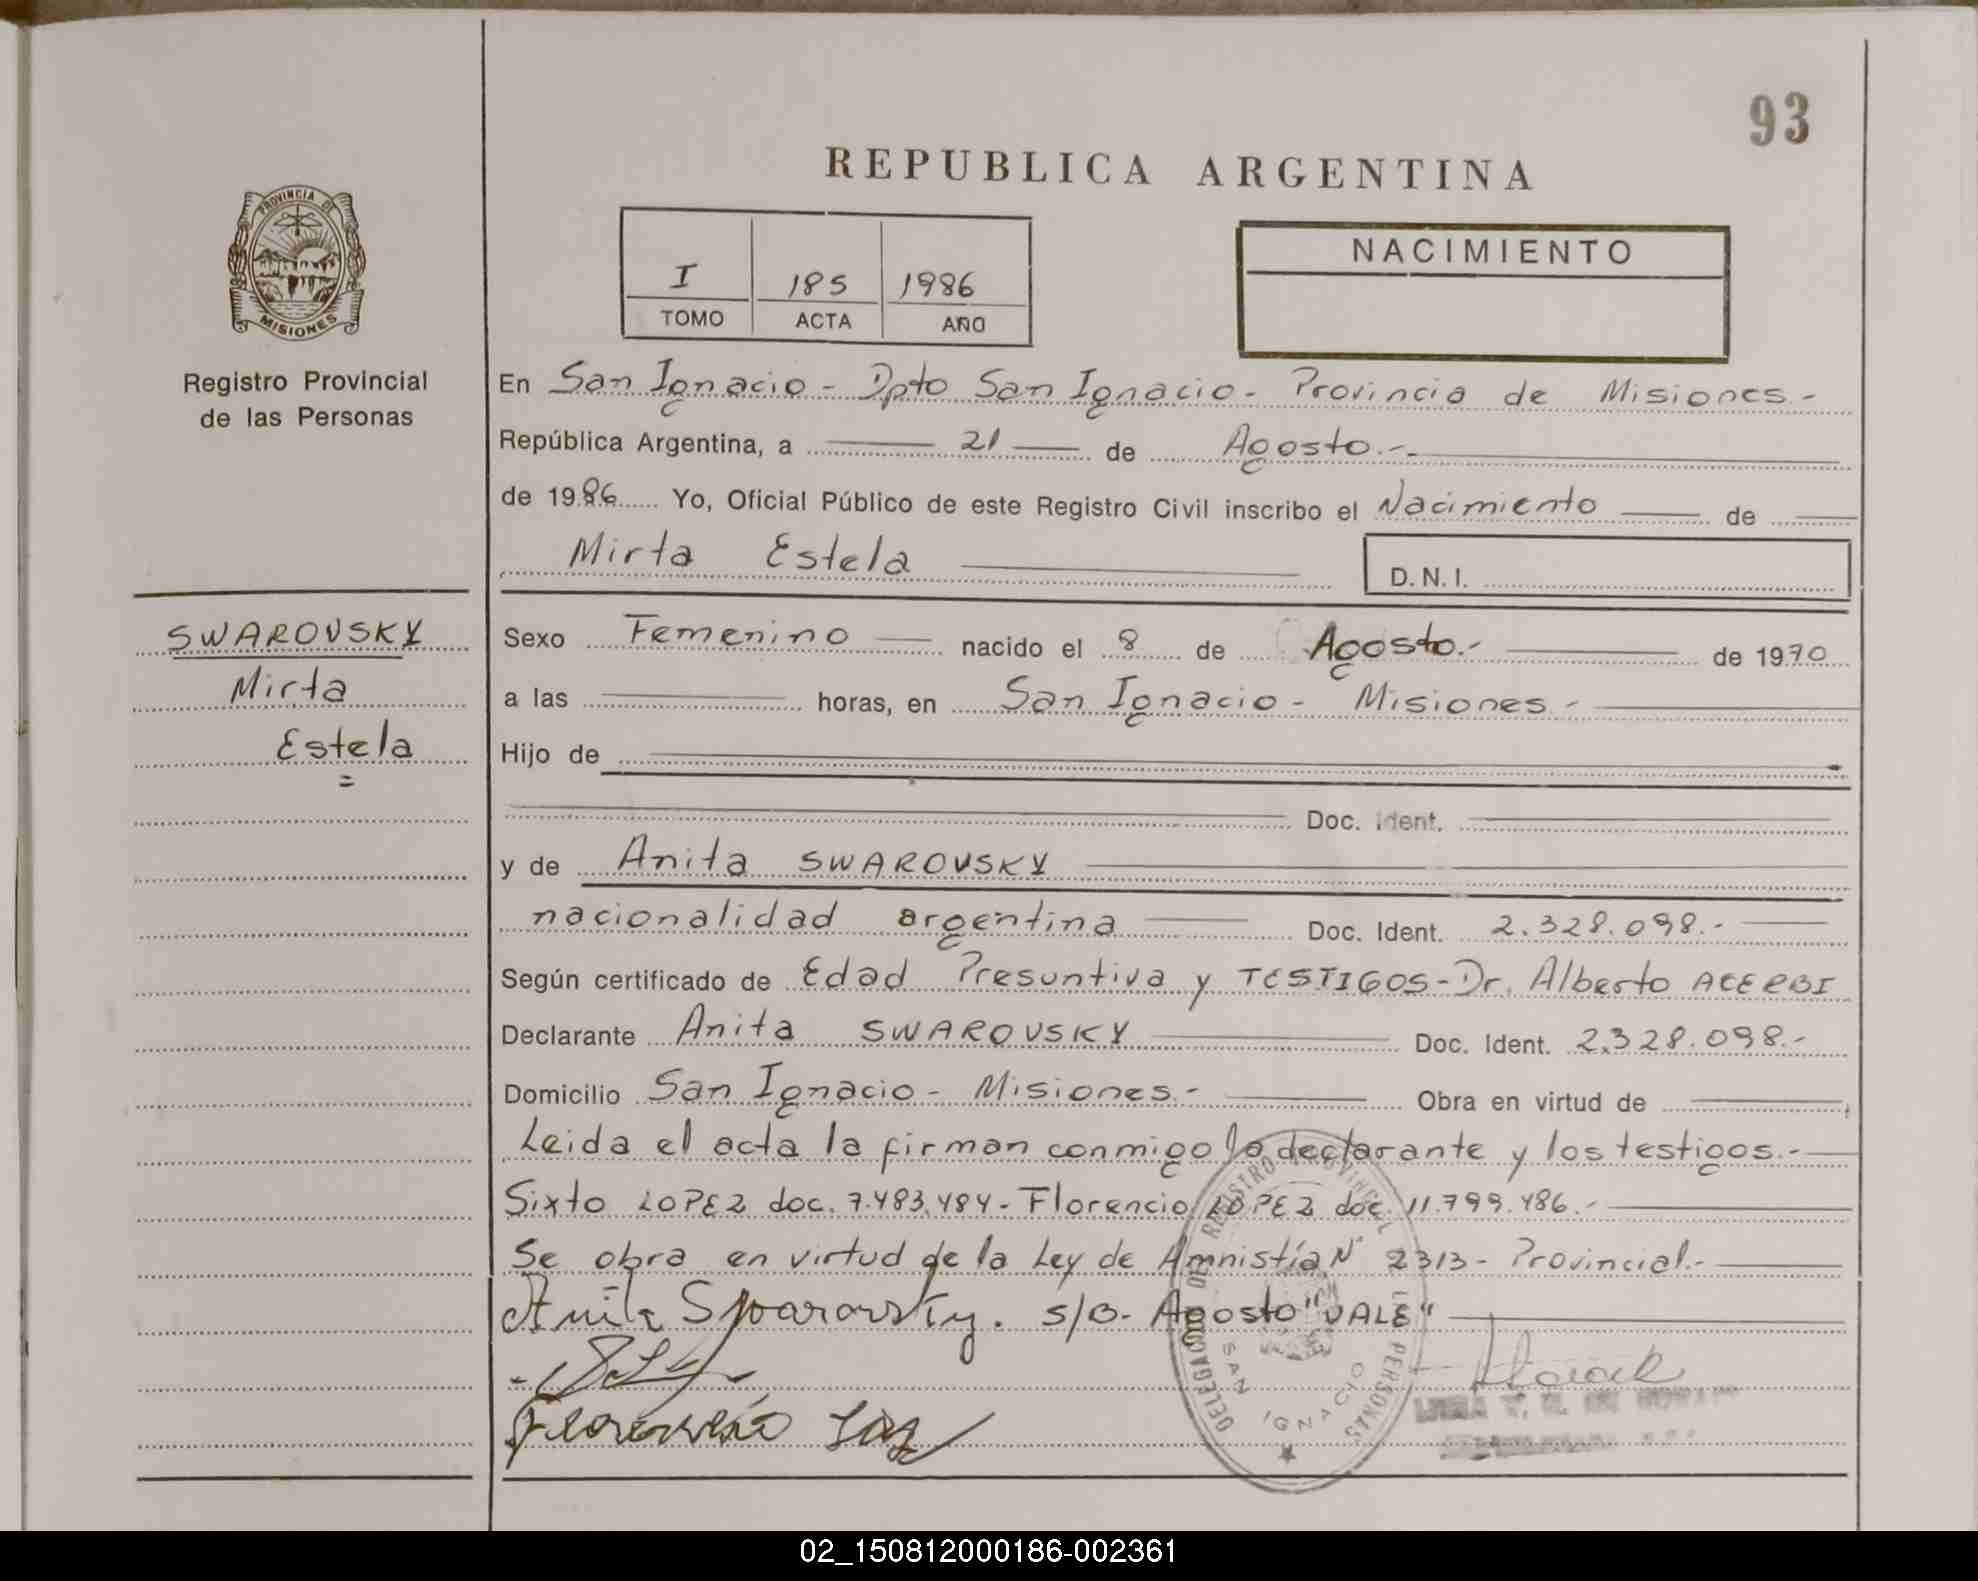 93
REPUBLICA ARGENTINA
PROVINCIA DE
MISIONES
Registro Provincial
de las Personas
I 185 1986
TOMO ACTA AÑO
NACIMIENTO
En San Ignacio - Dpto San Ignacio - Provincia de Misiones.-
República Argentina, a 21 de Agosto.-
de 1986 Yo, Oficial Público de este Registro Civil inscribo el Nacimiento de
Mirta Estela D.N.I.
SWAROVSKY
Mirta
Estela
Sexo Femenino nacido el 8 de Agosto.- de 1970
a las horas, en San Ignacio - Misiones.-
Hijo de
Doc. Ident.
y de Anita SWAROVSKY
nacionalidad argentina Doc. Ident. 2.328.098.-
Según certificado de Edad Presuntiva y TESTIGOS - Dr. Alberto ACERBI
Declarante Anita SWAROVSKY Doc. Ident. 2.328.098.-
Domicilio San Ignacio - Misiones.- Obra en virtud de
Leida el acta la firman conmigo la declarante y los testigos.-
Sixto LOPEZ doc. 7.483.484 - Florencio LOPEZ doc. 11.799.486.-
Se obra en virtud de la Ley de Amnistía N° 2313 - Provincial.-
Anita Swarovsky. S/B- Agosto "VALE"
DELEGACION DEL REGISTRO PROVINCIAL PERSONAS
SAN IGNACIO
02_150812000186-002361